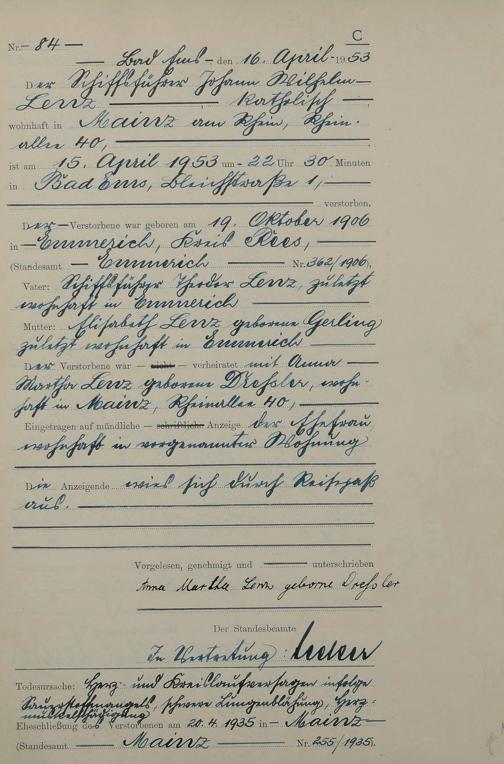 C
Nr. 84
Bad Ems, den 16. April 1953
Der Schiffsführer Johann Wilhelm
Lenz katholisch,
wohnhaft in Mainz am Rhein, Rhein-
allee 40,
ist am 15. April 1953 um 22 Uhr 30 Minuten
in Bad Ems, Bleichstraße 1,
verstorben.
Der Verstorbene war geboren am 19. Oktober 1906
in Emmerich, Kreis Rees,
(Standesamt Emmerich Nr. 362/1906).
Vater: Schiffsführer Theodor Lenz, zuletzt
wohnhaft in Emmerich
Mutter: Elisabeth Lenz geborene Gerling
zuletzt wohnhaft in Emmerich
Der Verstorbene war – nicht – verheiratet mit Anna
Martha Lenz geborene Dreßler, wohn-
haft in Mainz, Rheinallee 40,
Eingetragen auf mündliche – schriftliche Anzeige der Ehefrau,
wohnhaft in vorgenannter Wohnung
Die Anzeigende wies sich durch Reisepaß
aus.
Vorgelesen, genehmigt und unterschrieben
Anna Martha Lenz geborne Dreßler
Der Standesbeamte
In Vertretung:
Todesursache: Herz- und Kreislaufversagen infolge
Sauerstoffmangels, schwere Lungenblähung, Herz-
muskelschädigung
Eheschließung des Verstorbenen am 20.4.1935 in Mainz
(Standesamt Mainz Nr. 255/1935).